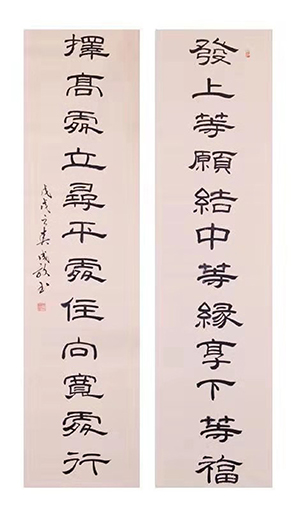 發上等願結中等緣享下等福
擇髙處立尋平處住向寬處行
戊戌之春